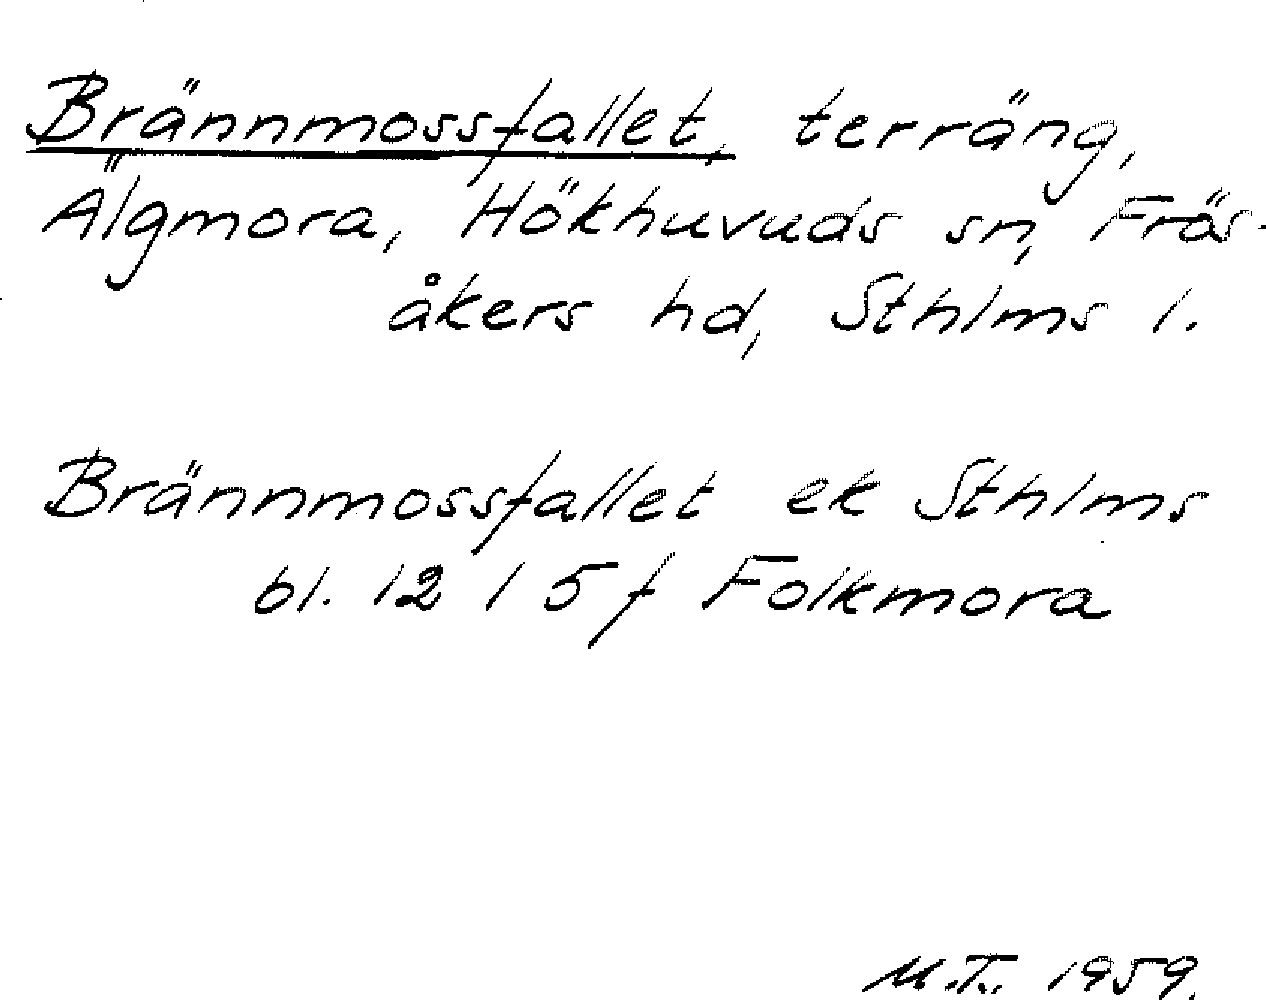 Brännmossfallet, terräng,
Älgmora, Hökhuvuds sn, Frös-
åkers hd, Sthlms l.
Brännmossfallet ek Sthlms
bl. 12 I 5 f Folkmora
M.T. 1959.